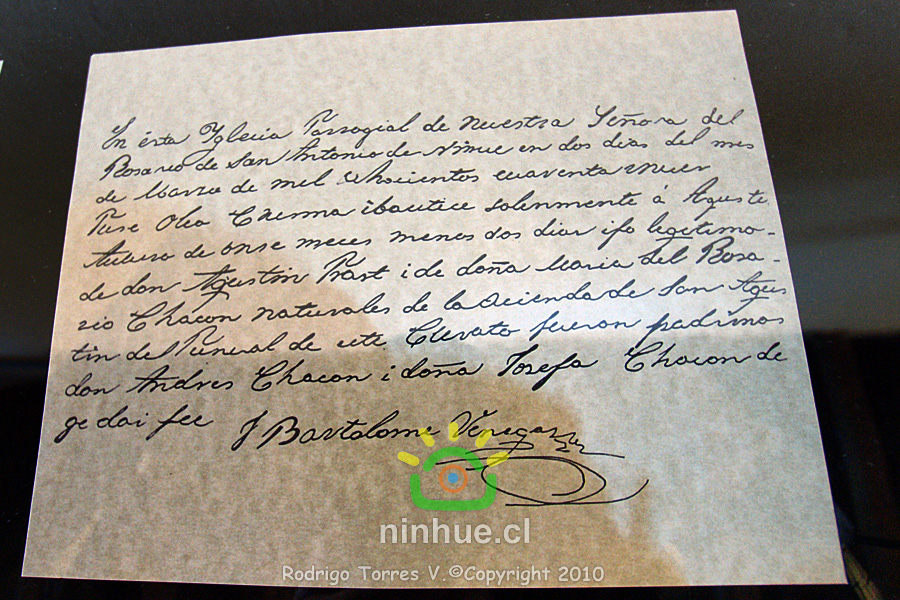 En ésta Yglecia Parrogial de Nuestra Señora del
Rosario de San Antonio de Ninue en dos dias del mes
de Marzo de mel Ohocientos cuaventa inuev
Puse Oleo Crisma ibautice solenmente á Aguste
Arturo de onse meces menos dos diar ijo legitimo-
de don Agustin Prast i de doña Maria del Rosa-
rio Chacon naturales de la acienda de San Agus
tin del Puneral de este Curato fueron padrinos
don Andres Chacon i doña Josefa Chacon de
qe doi fee J Bartolome Venegas
ninhue.cl
Rodrigo Torres V.©Copyright 2010